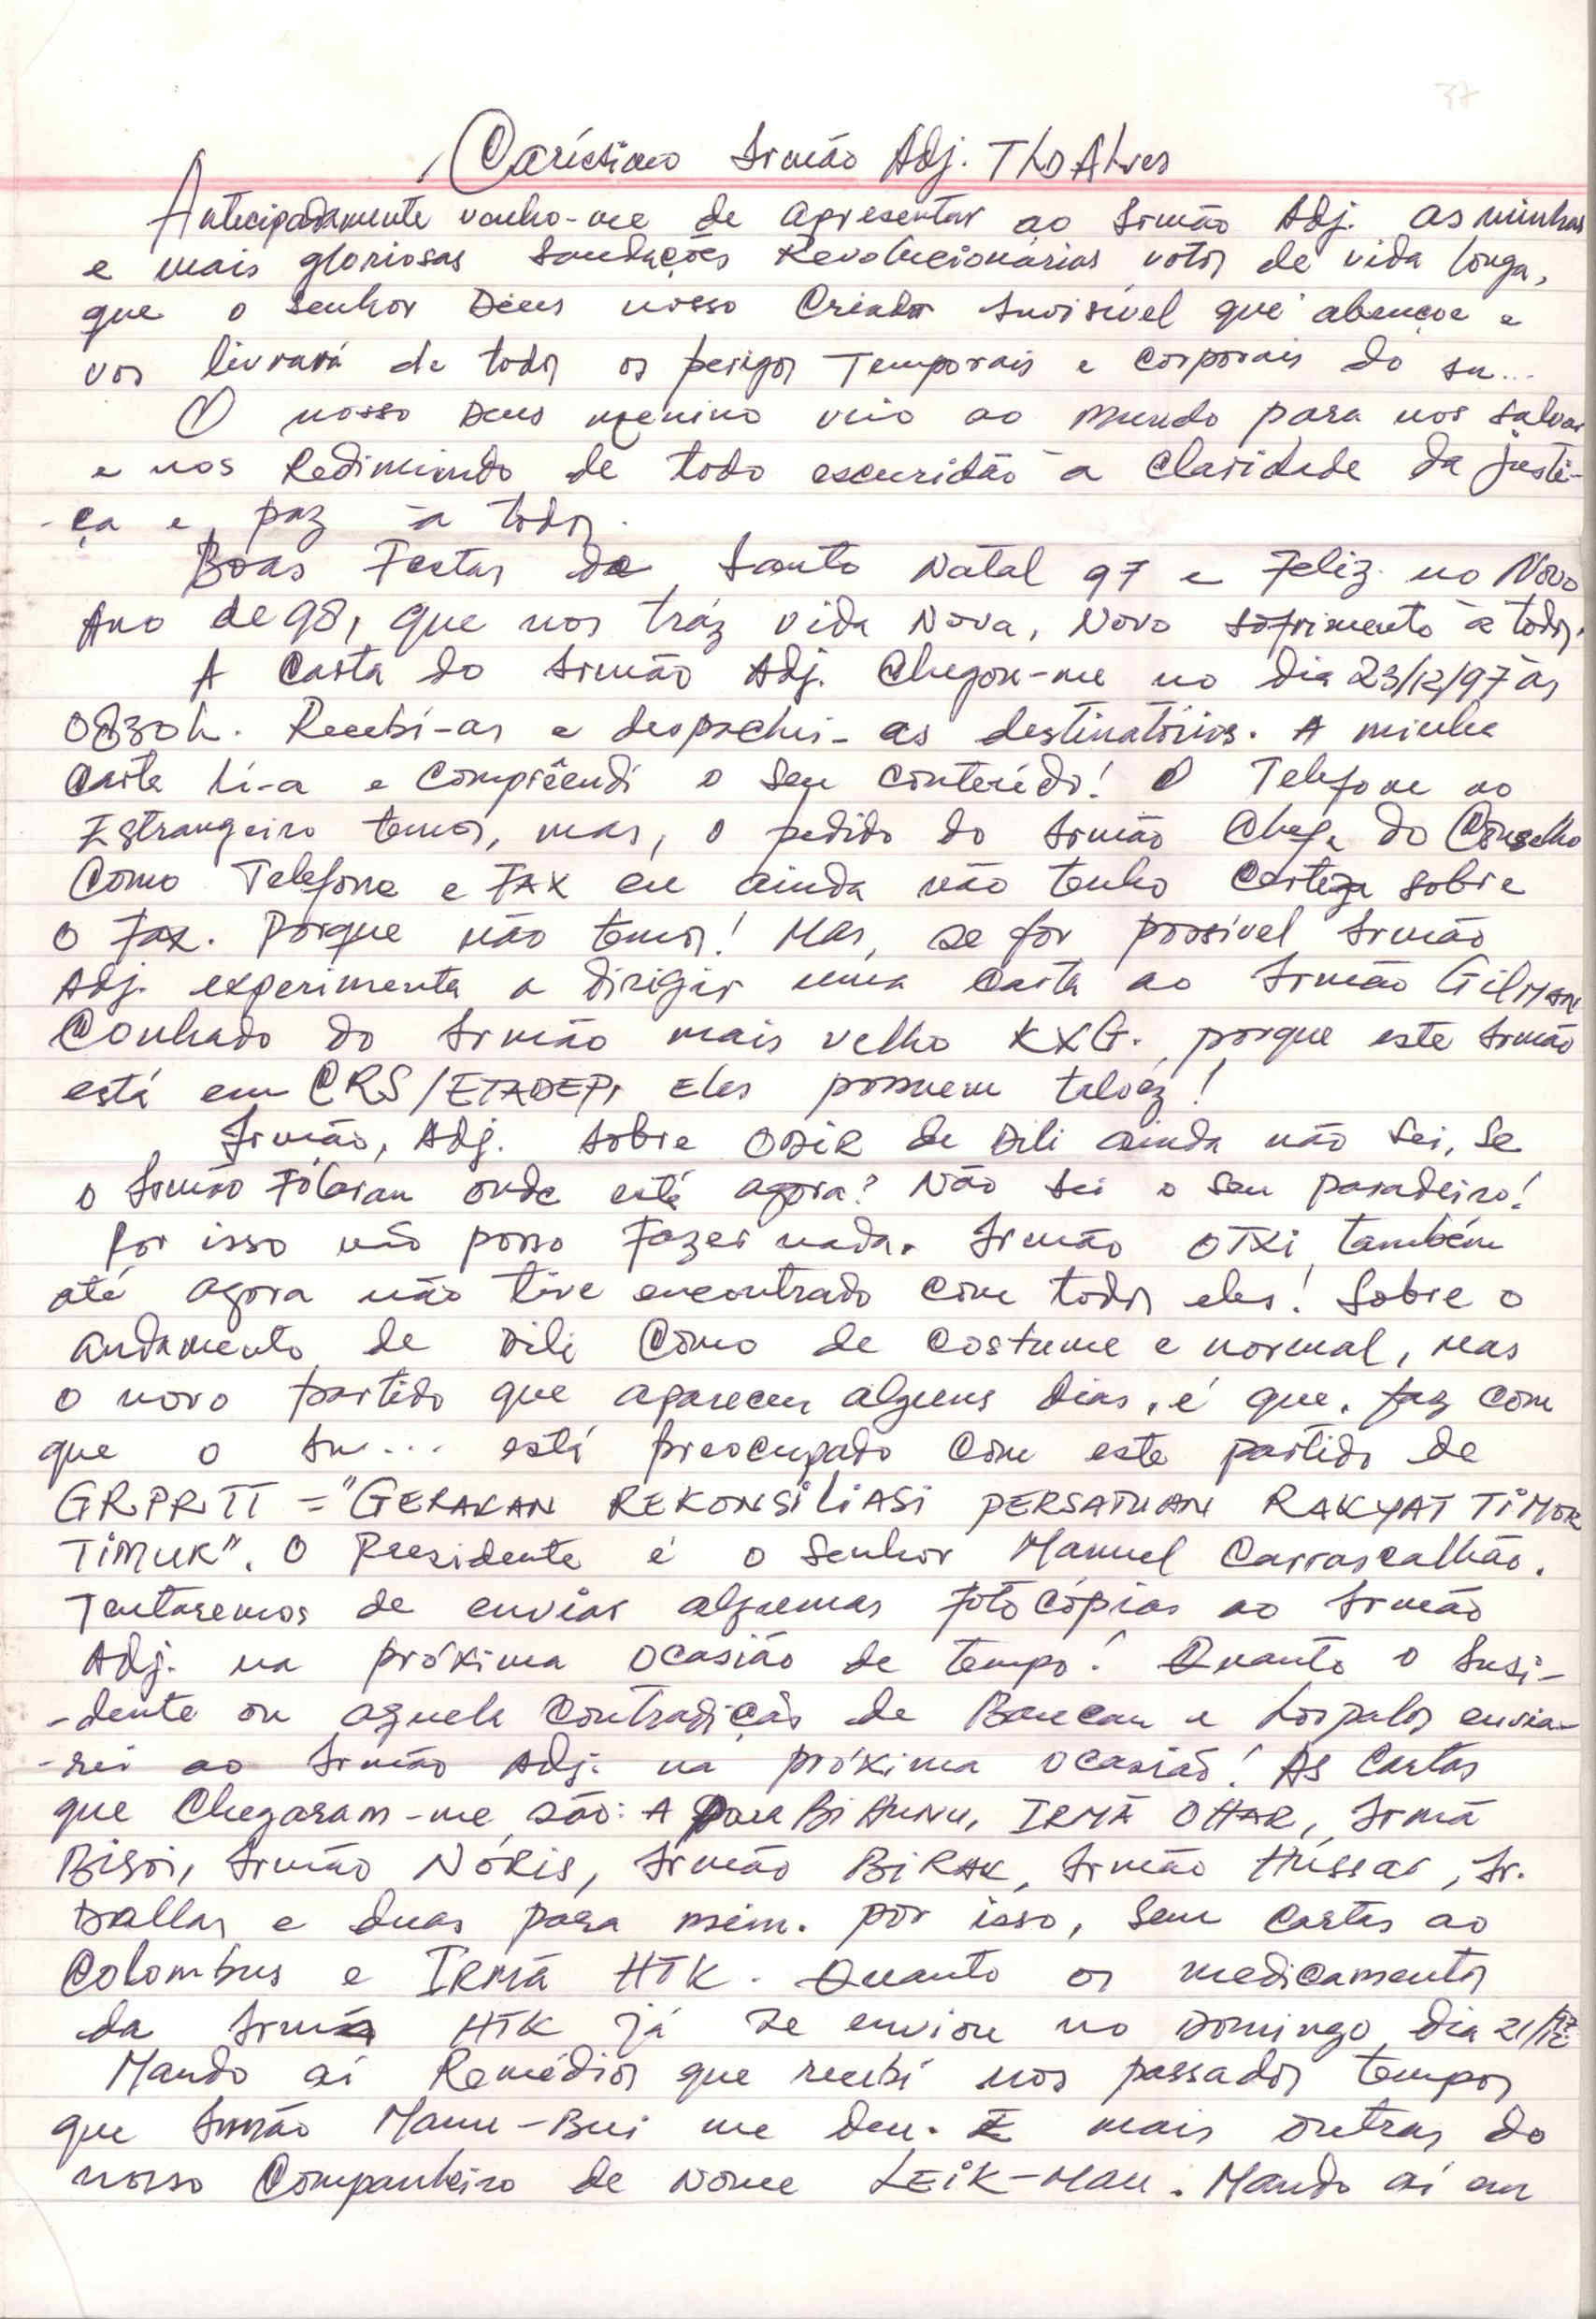 37
Caríssimo Irmão Adj. Tho Alves
Antecipadamente venho-me de apresentar ao Irmão Adj. as minhas
e mais gloriosas Saudações Revolucionárias votos de vida longa,
que o senhor Deus nosso Criador Invisível que abençoe e
vos livrará de todos os perigos Temporais e corporais do in...
O nosso Deus menino veio ao mundo para nos salvar
e nos Redimindo de todo escuridão à claridade da justi-
-ça e paz à todos.
Boas Festas de Santo Natal 97 e Feliz no Novo
Ano de 98, que nos tráz vida Nova, Novo sofrimento à todos.
A Carta do Irmão Adj. Chegou-me no dia 23/12/97 às
0830h. Recebí-as e despachei-as destinatórios. A minha
Carta lí-a e Comprêendi o seu conteúdo! O Telefone ao
Estrangeiro temos, mas, o pedido do Irmão Chefe do Conselho
Como Telefone e FAX eu ainda não tenho Certeza sobre
o Fax. Porque não temos! Mas, se for possível Irmão
Adj. experimenta a dirigir uma Carta ao Irmão Gilman
Conhado do Irmão mais velho KXG. porque este Irmão
está em CRS/ETADEP, Eles possuem talvéz!
Irmão, Adj. sobre ODIR de Dili ainda não sei, se
o Irmão Fólaran onde está agora? Não sei o seu paradeiro!
por isso não posso Fazer nada. Irmão OTXi também
até agora não tive encontrado com todos eles! Sobre o
andamento de Dili Como de costume e normal, mas
o novo partido que apareceu alguns dias, é que, faz com
que o in... está preocupado com este partido de
GRPRTT = "GERAKAN REKONSiLiASi PERSATUAN RAKYAT TiMOR
TiMUR". O Presidente é o Senhor Manuel Carrascalhão.
Tentaremos de enviar algumas Fotocópias ao Irmão
Adj. na próxima ocasião de tempo! Quanto o Insi-
-dente ou aquela contradição de Baucau e Lospalos envia-
-rei ao Irmão Adj. na próxima ocasião! As Cartas
que Chegaram-me são: A para Bi Hunu, IRMÃ OHAR, Irmã
Bisoi, Irmão Nóris, Irmão BiRAK, Irmão Hússar, Ir.
Dallas e duas para mim. por isso, sem Cartas ao
Colombus e IRMÃ HTK. Quanto os medicamentos
da Irmã HTK já se enviou no Domingo dia 21/12
Mando aí Remédios que recebí nos passados tempos
que Irmão Manu-Bui me deu. E mais outras do
nosso Companheiro de Nome LEiK-Mau. Mando aí em